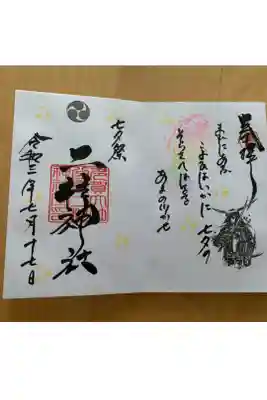 奉拝
まれにあふ
こよひはいかに 七夕の
そらさへはるる
あまの川かせ
七夕祭
二柱神社
令和三年七月十七日